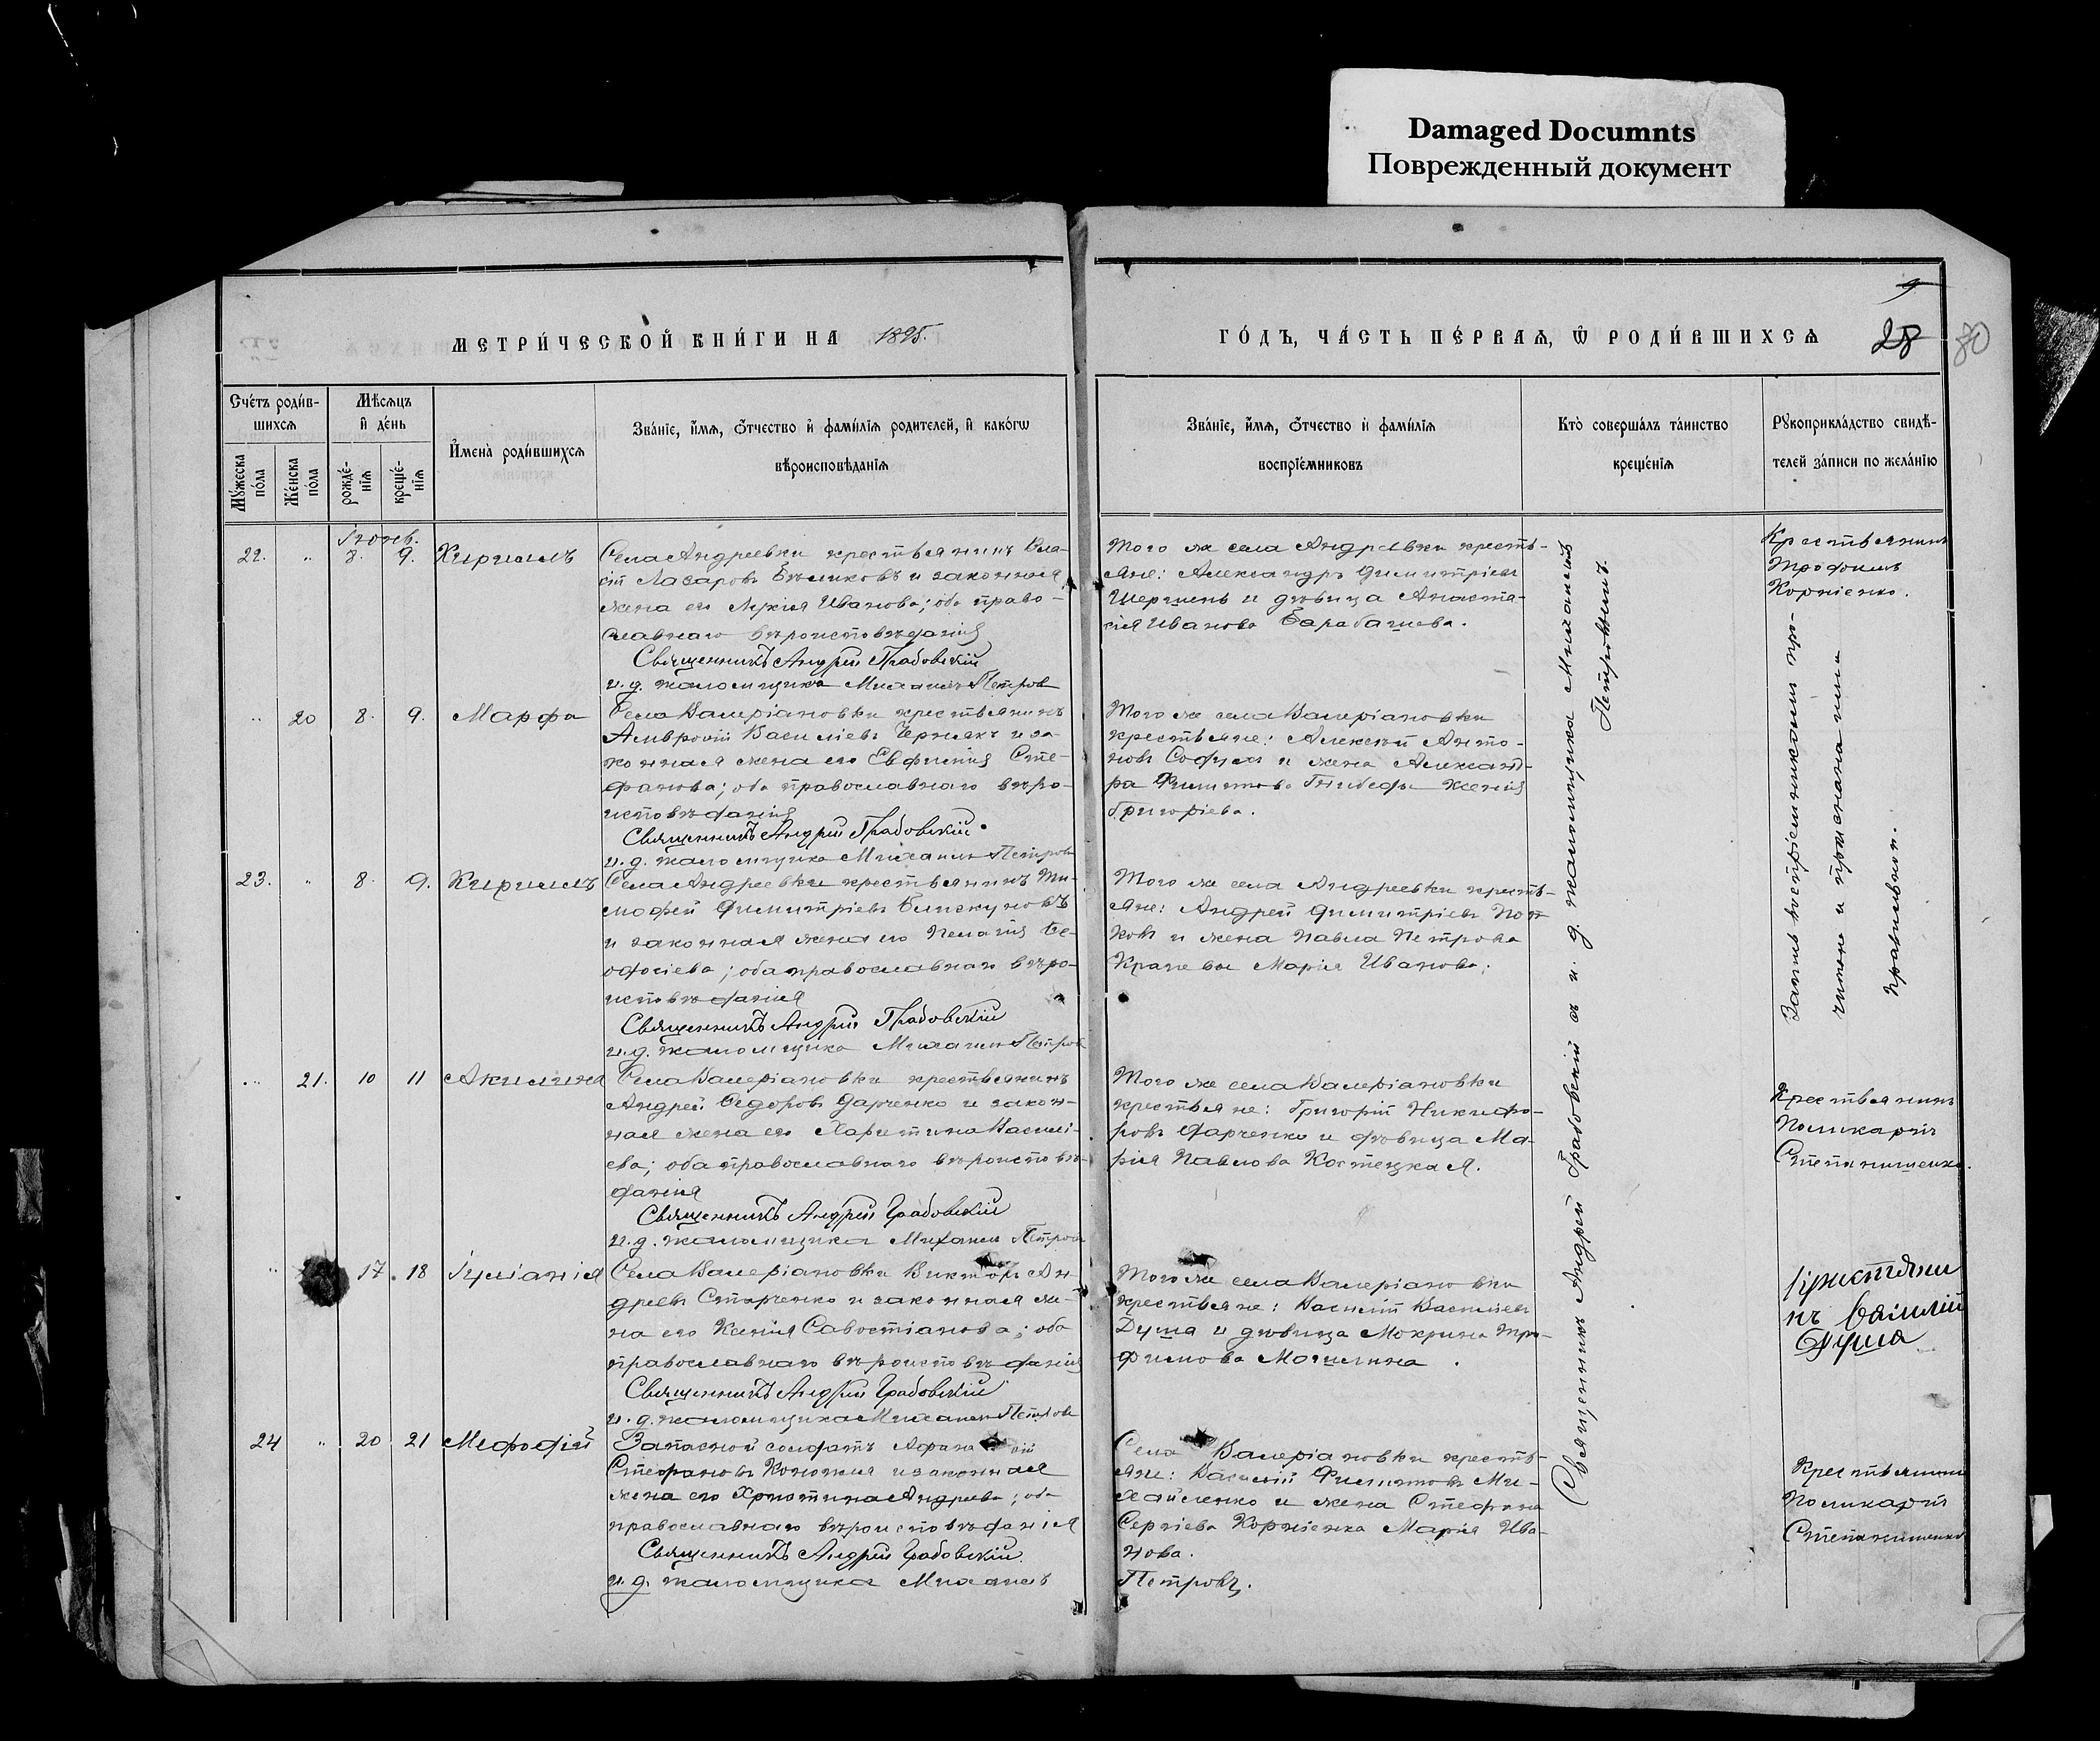 Damaged Documnts
Поврежденный документ
9
МЕТРИ́ЧЕСКОЙ КНИ́ГИ НА 1895.
ГО́ДЪ, ЧА́СТЬ ПЕ́РВАѦ, Ѿ РОДИ́ВШИХСѦ
28 80
Сче́тъ роди́в-
шихсѧ
Мѣсѧцъ
и҆ де́нь
Мꙋ́жеска по́ла
Же́нска по́ла
рожде́-нїѧ
креще́-нїѧ
И҆мена̀ роди́вшихсѧ
Зва́нїе, и҆́мѧ, ѻ҆́тчество и҆ фами́лїѧ роди́телей, и҆ како́гѡ
вѣроисповѣ́данїѧ
Зва́нїе, и҆́мѧ, ѻ҆́тчество и҆ фами́лїѧ
воспрїе́мниковъ
Кто̀ соверша́лъ та́инство
креще́нїѧ
Рꙋкоприкла́дство свидѣ́-
телей за́писи по жела́нїю
22. " 8. 9. Кириллъ
Села Андреевки крестьянинъ Вла-
сій Лазаровъ Бѣликовъ и законная
жена его Лукія Иванова; оба право-
славнаго вѣроисповѣданія
Священникъ Андрей Грабовскій
и. д. псаломщика Михаилъ Петров
Того же села Андреевки кресть-
яне: Александръ Димитріевъ
Шершень и дѣвица Анаста-
сія Иванова Барабашева.
Крестьянинъ
Трофимъ
Корніенко.
" 20 8. 9. Марфа
Села Валеріановки крестьянинъ
Амвросій Васильевъ Чернякъ и за-
конная жена его Евфимія Сте-
фанова; оба православнаго вѣро-
исповѣданія
Священникъ Андрей Грабовскій.
и. д. псаломщика Михаилъ Петровъ
Того же села Валеріановки
крестьяне: Алексѣй Анто-
новъ и жена Александ-
ра Филиппова Ксенія
Григоріева.
23. " 8. 9. Кириллъ
Села Андреевки крестьянинъ Ти-
мофей Димитріевъ Блискуновъ
и законная жена его Пелагія Ѳе-
одосіева; оба православнаго вѣро-
исповѣданія
Священникъ Андрей Грабовскій
и. д. псаломщика Михаилъ Петров
Того же села Андреевки кресть-
яне: Андрей Димитріевъ Поп-
ковъ и жена Павла Петрова
Марія Иванова;
" 21. 10 11 Акилина
Села Валеріановки крестьянинъ
Андрей Ѳедоровъ Дарченко и закон-
ная жена его Харитина Василі-
ева; оба православнаго вѣроисповѣ-
данія
Священникъ Андрей Грабовскій
и. д. псаломщика Михаилъ Петров
Того же села Валеріановки
крестьяне: Григорій Никифо-
ровъ Дарченко и дѣвица Ма-
рія Павлова Костецкая.
Крестьянинъ
Поликарпъ
Степаниченко.
" 17. 18 Іуліанія
Села Валеріановки Викторъ Ан-
дреевъ Старченко и законная же-
на его Ксенія Савостіанова; оба
православнаго вѣроисповѣданія
Священникъ Андрей Грабовскій
и. д. псаломщика Михаилъ Петровъ
Того же села Валеріановки
крестьяне: Василій Васильевъ
Душа и дѣвица Мокрина Тро-
фимова Могилина.
Душа
24 " 20 21 Мефодій
Запасной солдатъ
Стефановъ и законная
жена его Христина Андреева; оба
православнаго вѣроисповѣданія
Священникъ Андрей Грабовскій
и. д. псаломщика Михаилъ
Петровъ.
Села Валеріановки кресть-
яне: Василій Филипповъ Ми-
хайленко и жена Стефана
Сергіева Корніенка Марія Ива-
нова.
Крестьянинъ
Поликарпъ
Степаниченко
Священникъ Андрей Грабовскій съ и. д. псаломщика Михаиломъ
Петровымъ.
Запись воспріемникомъ про-
читана и признана имъ
правильной.